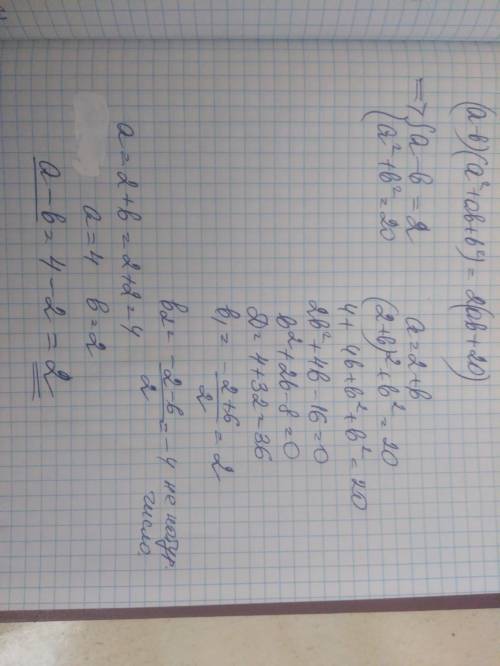 (a-b)(a²+ab+b²) = 2(ab+20)
=7 { a-b = 2
a²+b² = 20
a = 2+b
(2+b)²+b² = 20
4+4b+b²+b² = 20
2b²+4b-16=0
b²+2b-8=0
D=4+32=36
b₁ = -2+6/2 = 2
b₂ = -2-6/2 = -4 не натур. число
a = 2+b = 2+2=4
a=4 b=2
a-b=4-2=2